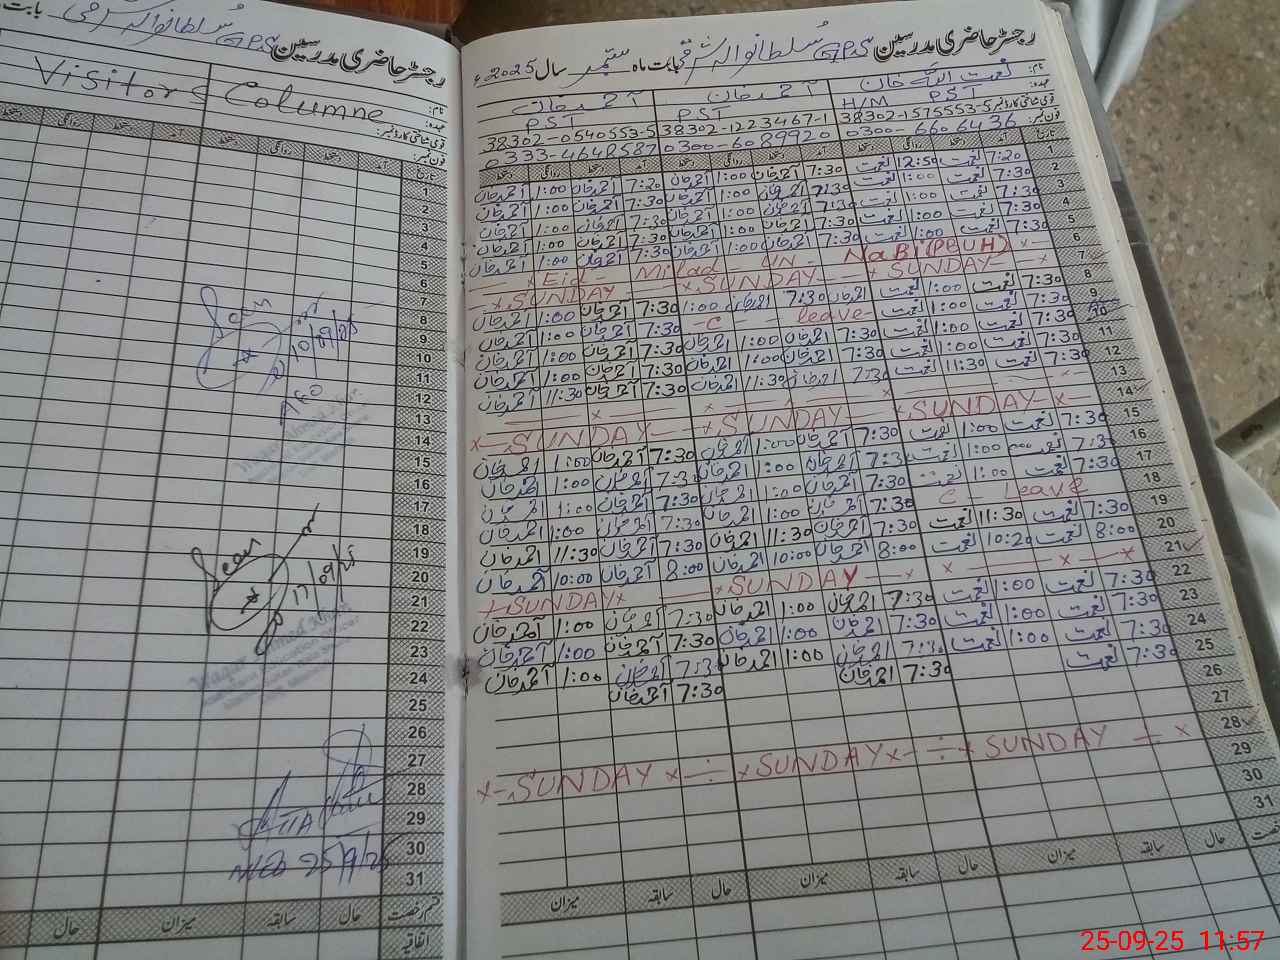 رجسٹر حاضری مدرسین GPS سُلطانوالہ شرقی بابت
Visitors Columne
نام:
عہدہ:
قومی شناختی کارڈ نمبر:
فون نمبر:
تاریخ آمد دستخط روانگی دستخط آمد دستخط روانگی دستخط
1
2
3
4
5
6
7
8
9
10
11
12
13
14
15
16
17
18
19
20
21
22
23
24
25
26
27
28
29
30
31
10/09/25
AEO
17/09/25
Waqar Ahmed Khan
25/9/25
قسم رخصت حال سابقہ میزان حال
اتفاقیہ
رجسٹر حاضری مدرسین GPS سُلطانوالہ شرقی بابت ماہ ستمبر سال 2025ء
نام: نعمت اللہ خان احمد خان احمد خان
عہدہ: H/M PST PST PST
قومی شناختی کارڈ نمبر: 38302-1575553-5 38302-1223467-1 38302-0540553-5
فون نمبر: 0300-6606436 0300-6089920 0333-4648587
تاریخ آمد دستخط روانگی دستخط آمد دستخط روانگی دستخط آمد دستخط روانگی دستخط
1 7:20 نعمت 12:50 نعمت 7:30 احمد خان 1:00 احمد خان 7:20 احمد خان 1:00 احمد خان
2 7:30 نعمت 1:00 نعمت 7:30 احمد خان 1:00 احمد خان 7:30 احمد خان 1:00 احمد خان
3 7:30 نعمت 1:00 نعمت 7:30 احمد خان 1:00 احمد خان 7:30 احمد خان 1:00 احمد خان
4 7:30 نعمت 1:00 نعمت 7:30 احمد خان 1:00 احمد خان 7:30 احمد خان 1:00 احمد خان
5 7:30 نعمت 1:00 نعمت 7:30 احمد خان 1:00 احمد خان 7:30 احمد خان 1:00 احمد خان
6 Eid - Milad - UN - NaBi (PBUH)
7 SUNDAY SUNDAY SUNDAY
8 7:30 نعمت 1:00 نعمت 7:30 احمد خان 1:00 احمد خان 7:30 احمد خان 1:00 احمد خان
9 7:30 نعمت 1:00 نعمت - C - leave 7:30 احمد خان 1:00 احمد خان
10 7:30 نعمت 1:00 نعمت 7:30 احمد خان 1:00 احمد خان 7:30 احمد خان 1:00 احمد خان
11 7:30 نعمت 1:00 نعمت 7:30 احمد خان 1:00 احمد خان 7:30 احمد خان 1:00 احمد خان
12 7:30 نعمت 11:30 نعمت 7:30 احمد خان 11:30 احمد خان 7:30 احمد خان 11:30 احمد خان
13
14 SUNDAY SUNDAY SUNDAY
15 7:30 نعمت 1:00 نعمت 7:30 احمد خان 1:00 احمد خان 7:30 احمد خان 1:00 احمد خان
16 7:30 نعمت 1:00 نعمت 7:30 احمد خان 1:00 احمد خان 7:30 احمد خان 1:00 احمد خان
17 7:30 نعمت 1:00 نعمت 7:30 احمد خان 1:00 احمد خان 7:30 احمد خان 1:00 احمد خان
18 C - Leave 7:30 احمد خان 1:00 احمد خان 7:30 احمد خان 1:00 احمد خان
19 7:30 نعمت 11:30 نعمت 7:30 احمد خان 11:30 احمد خان 7:30 احمد خان 11:30 احمد خان
20 8:00 نعمت 10:20 نعمت 8:00 احمد خان 10:00 احمد خان 8:00 احمد خان 10:00 احمد خان
21 SUNDAY SUNDAY
22 7:30 نعمت 1:00 نعمت 7:30 احمد خان 1:00 احمد خان 7:30 احمد خان 1:00 احمد خان
23 7:30 نعمت 1:00 نعمت 7:30 احمد خان 1:00 احمد خان 7:30 احمد خان 1:00 احمد خان
24 7:30 نعمت 1:00 نعمت 7:30 احمد خان 1:00 احمد خان 7:30 احمد خان 1:00 احمد خان
25 7:30 نعمت 7:30 احمد خان 7:30 احمد خان
26
27
28 SUNDAY SUNDAY SUNDAY
29
30
31
رخصت حال سابقہ میزان حال سابقہ میزان حال سابقہ میزان
25-09-25 11:57